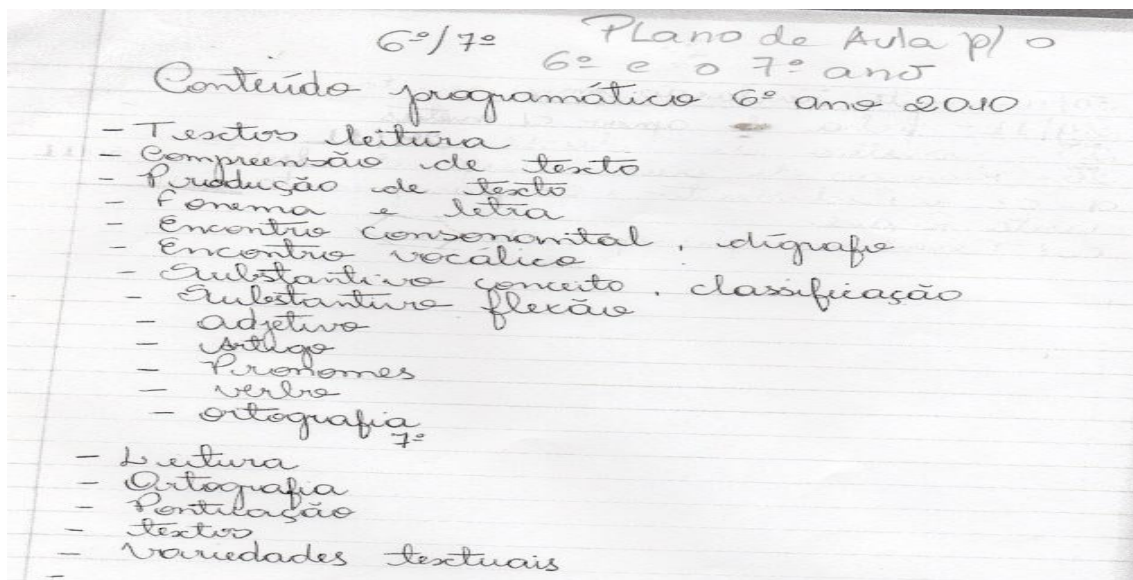 6º/7º Plano de Aula p/ o
6º e o 7º ano
Conteúdo programático 6º ano 2010
- Textos leitura
- Compreensão de texto
- Produção de texto
- Fonema e letra
- Encontro consonantal, dígrafo
- Encontro vocálico
- Substantivo conceito, classificação
- Substantivo flexão
- adjetivo
- Artigo
- Pronomes
- verbo
- ortografia
7º
- Leitura
- Ortografia
- Pontuação
- textos
- Variedades textuais
-